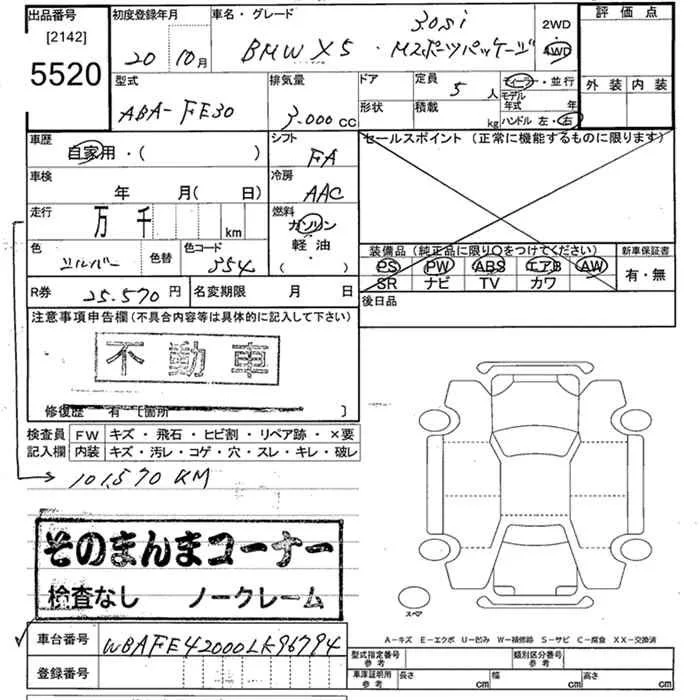 出品番号
[2142]
5520
初度登録年月
20年 10月
車名・グレード
3.0si
BMW X5・Mスポーツパッケージ
2WD
4WD
評価点
外装 内装
型式
ABA-FE30
排気量
3.000 cc
ドア
形状
定員
5人
積載
kg
ディーラー・並行
モデル
年式 年
ハンドル 左・右
車歴
自家用・( )
シフト
FA
セールスポイント (正常に機能するものに限ります)
車検
年 月( 日)
冷房
AAC
走行
万 千 km
燃料
ガソリン
軽油
( )
色
シルバー
色替
色コード
354
装備品 (純正品に限り○をつけてください)
PS PW ABS エアB AW
SR ナビ TV カワ
新車保証書
有・無
R券 25.570円
名変期限 月 日
後日品
注意事項申告欄 (不具合内容等は具体的に記入して下さい)
不動車
修復歴 有 [箇所 ]
検査員 FW キズ・飛石・ヒビ割・リペア跡・×要
記入欄 内装 キズ・汚レ・コゲ・穴・スレ・キレ・破レ
101,570 KM
そのまんまコーナー
検査なし ノークレーム
スペア
A-キズ E-エクボ U-凹み W-補修跡 S-サビ C-腐食 XX-交換済
車台番号 WBAFE42000LK96794
登録番号
型式指定番号
参考
類別区分番号
参考
車庫証明用
参考
長さ cm 幅 cm 高さ cm